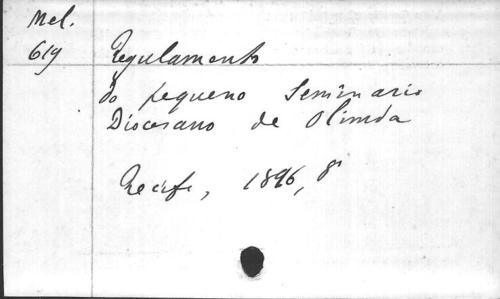 Mel.
619
Regulamento
do pequeno Seminario
Diocesano de Olinda
Recife, 1896, 8°